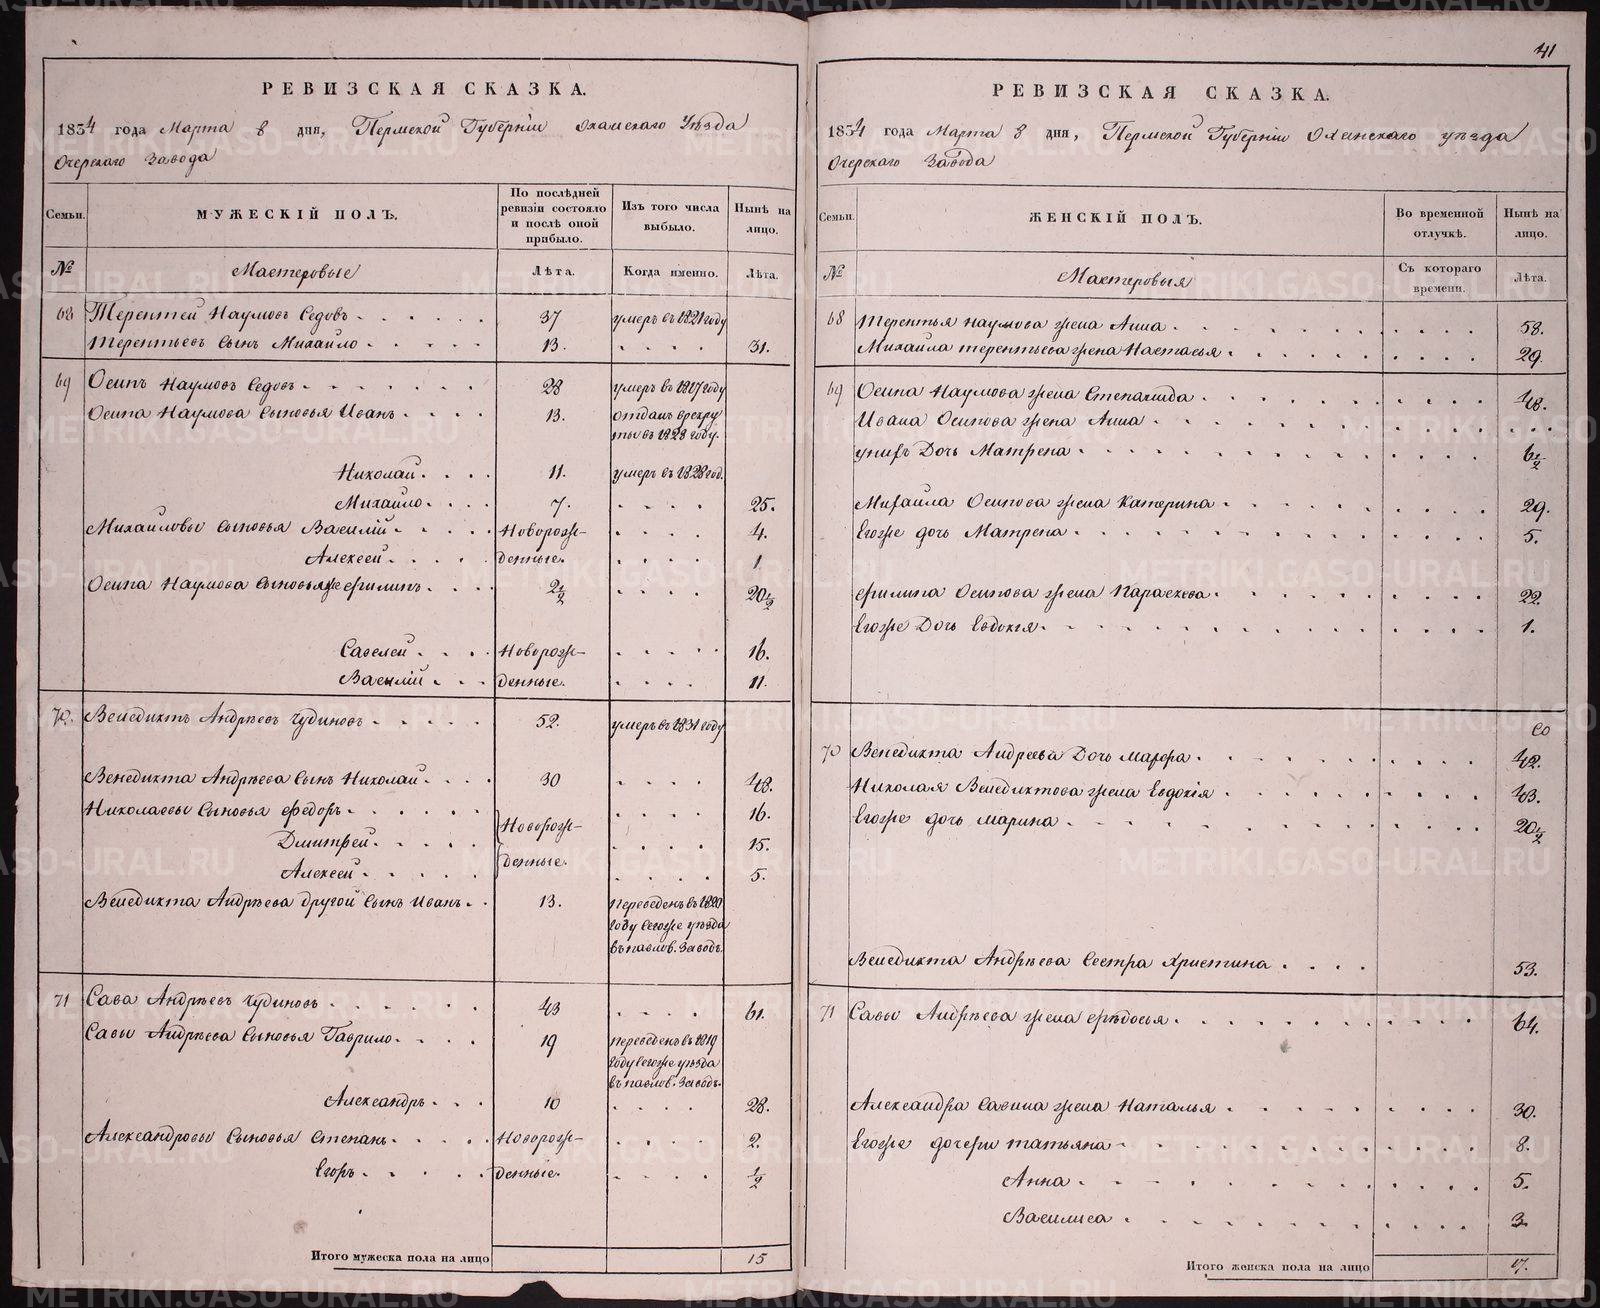 РЕВИЗСКАЯ СКАЗКА.
1834 года Марта 8 дня, Пермской Губернiи Оханскаго Уѣзда
Очерскаго Завода
Семьи.
МУЖЕСКІЙ ПОЛЪ.
По послѣдней ревизіи состояло и послѣ оной прибыло.
Изъ того числа выбыло.
Нынѣ на лицо.
№ Мастеровые Лѣта. Когда именно. Лѣта.
68 Терентей Наумовъ Седовъ 37 умеръ въ 1821 году
Терентьевъ сынъ Михайло 13. 31.
69 Осипъ Наумовъ Седовъ 28 умеръ въ 1827 году
Осипа Наумова сыновья Иванъ 13. отданъ врекру
ты въ 1828 году.
Николай 11. умеръ въ 1828 год.
Михайло 7. 25.
Михайловы сыновья Василій Новорож- 4.
Алексей денные. 1
Осипа Наумова сыновьяже Филипъ 2½ 20½
Савелей Новорож- 16.
Василій денные. 11.
70. Венедиктъ Андрѣевъ Чудиновъ 52. умеръ въ 1831 году
Венедикта Андрѣева сынъ Николай 30 48.
Николаевы сыновья Федоръ 16.
Новорож-
Дмитрей 15.
денные.
Алексей 5.
Венедикта Андрѣева другой сынъ Иванъ 13. Переведенъ въ 1820
году тогоже уѣзда
въ павлов. Заводъ
71 Сава Андрѣевъ Чудиновъ 43 61.
Савы Андрѣева сыновья Гаврило 19 переведенъ въ 1819
году тогоже уѣзда
въ павлов. Заводъ.
Александръ 10 28.
Александровы сыновья Степанъ Новорож- 2.
Егоръ денные. ½
Итого мужеска пола на лицо 15
41
РЕВИЗСКАЯ СКАЗКА.
1834 года Марта 8 дня, Пермской Губернiи Оханскаго уѣзда
Очерскаго Завода
Семьи.
ЖЕНСКІЙ ПОЛЪ.
Во временной отлучкѣ.
Нынѣ на лицо.
№ Мастеровыя Съ котораго времени. Лѣта.
68 Терентья Наумова жена Анна 58.
Михайла терентьева жена Настасья 29.
69 Осипа Наумова жена Степанида 48.
Ивана Осипова жена Анна
унихъ Дочь Матрена 6½
Михайла Осипова жена Катерина 29.
Егоже дочь Матрена 5.
Филипа Осипова жена Параскева 22.
Егоже Дочь Евдокія 1.
70 Венедикта Андреева Дочь марфа 42.
Николая Венедиктова жена Евдокія 43.
Егоже дочь марина 20½
Венедикта Андрѣева Сестра Христина 53.
71 Савы Андрѣева жена Федосья 64.
Александра Савина жена Наталья 30.
Егоже дочери татьяна 8.
Анна 5.
Василиса 3
Итого женска пола на лицо 17.
METRIKI.GASO-URAL.RU